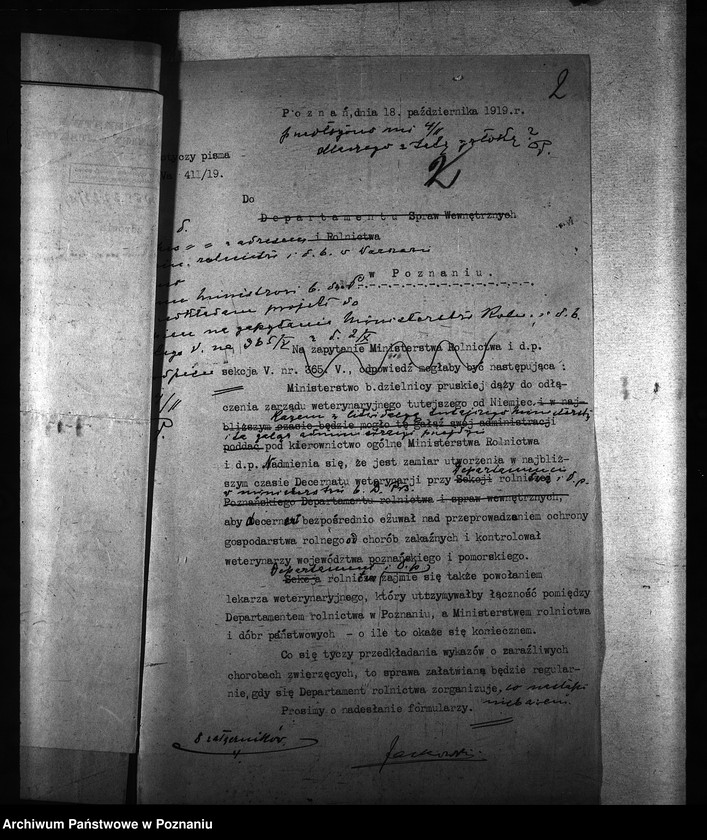 2
P o z n a ń, dnia 18. października 1919.r.
dlaczego
2
czy pisma
411/19.
Do
D e p a r t a m e n t u Spraw Wewnętrznych
i Rolnictwa
w P o z n a n i u.
z adresem
rolnictwa i d. b. w
ministrowi b. dz. P.
projekt do
na zapytanie Ministerstwa Roln. i d. b.
V. na 365/V z d. 2/X
Na zapytanie Ministerstwa Rolnictwa i d.p.
sekcja V. nr. 365. V., odpowiedź mogłaby być następująca :
Ministerstwo b.dzielnicy pruskiej dąży do odłą-
czenia zarządu weterynaryjnego tutejszego od Niemiec i w naj-
Razem z likwidacją tutejszego ministerstwa
bliższym czasie będzie mogło tę gałąź swój administracji
i ta gałąź administracji przejdzie
poddać pod kierownictwo ogólne Ministerstwa Rolnictwa
i d.p. Nadmienia się, że jest zamiar utworzenia w najbliż-
Departamencie
szym czasie Decernatu weterynarji przy Sekcji rolnictwa i d. p.
w ministerstwie b. D. Pr.
Poznańskiego Departamentu rolnictwa i spraw wewnętrznych,
aby decernent bezpośrednio czuwał nad przeprowadzaniem ochrony
gospodarstwa rolnego od chorób zakaźnych i kontrolował
weterynarzy województwa poznańskiego i pomorskiego.
Departament i d.p.
Sekcja rolnictwa zajmie się także powołaniem
lekarza weterynaryjnego, który utrzymywałby łączność pomiędzy
Departamentem rolnictwa w Poznaniu, a Ministerstwem rolnictwa
i dóbr państwowych - o ile to okaże się koniecznem.
Co się tyczy przedkładania wykazów o zaraźliwych
chorobach zwierzęcych, to sprawa załatwianą będzie regular-
nie, gdy się Departament rolnictwa zorganizuje, co nastąpi
niebawem.
Prosimy o nadesłanie formularzy.
8 załączników.
Archiwum Państwowe w Poznaniu